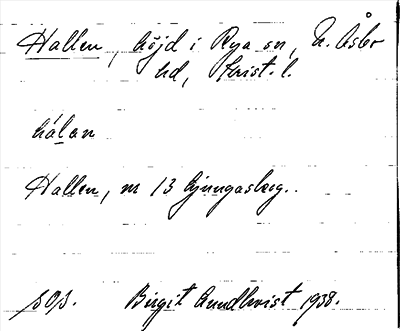 Hallen, höjd i Rya sn, N. Åsbo
hd, Krist. l.
hálan
Hallen, nr 13 Ljungaskog.
sOs. Birgit Lundkvist 1938.